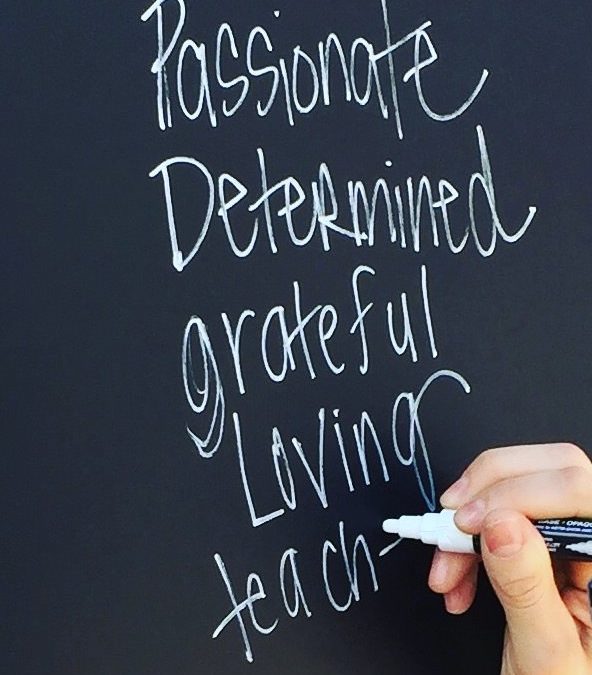 Passionate
Determined
grateful
Loving
teach-